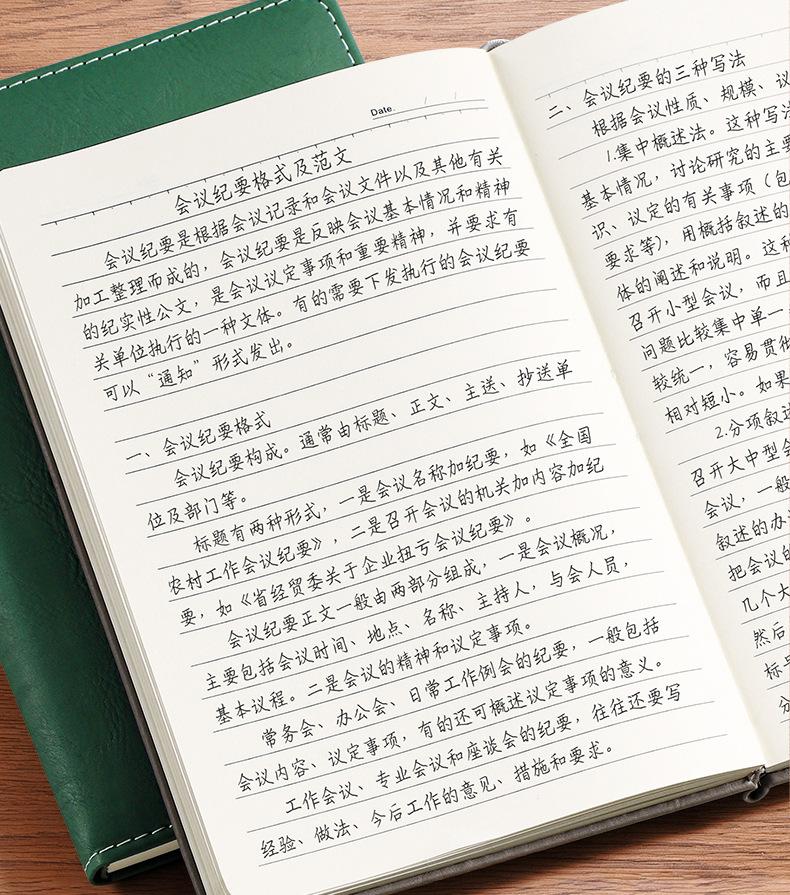 Date.
会议纪要格式及范文
会议纪要是根据会议记录和会议文件以及其他有关
加工整理而成的，会议纪要是反映会议基本情况和精神
的纪实性公文，是会议议定事项和重要精神，并要求有
关单位执行的一种文体。有的需要下发执行的会议纪要
可以“通知”形式发出。
一、会议纪要格式
会议纪要构成。通常由标题、正文、主送、抄送单
位及部门等。
标题有两种形式，一是会议名称加纪要，如《全国
农村工作会议纪要》，二是召开会议的机关加内容加纪
要，如《省经贸委关于企业扭亏会议纪要》。
会议纪要正文一般由两部分组成，一是会议概况，
主要包括会议时间、地点、名称、主持人，与会人员，
基本议程。二是会议的精神和议定事项。
常务会、办公会、日常工作例会的纪要，一般包括
会议内容、议定事项，有的还可概述议定事项的意义。
工作会议、专业会议和座谈会的纪要，往往还要写
经验、做法、今后工作的意见、措施和要求。
二、会议纪要的三种写法
根据会议性质、规模、议
1.集中概述法。这种写法
基本情况，讨论研究的主要
识、议定的有关事项（包
要求等），用概括叙述的
体的阐述和说明。这种
召开小型会议，而且
问题比较集中单一
较统一，容易贯彻
相对短小。如果
2.分项叙述
召开大中型会
会议，一般
叙述的办法
把会议的
几个大
然后
标与
分